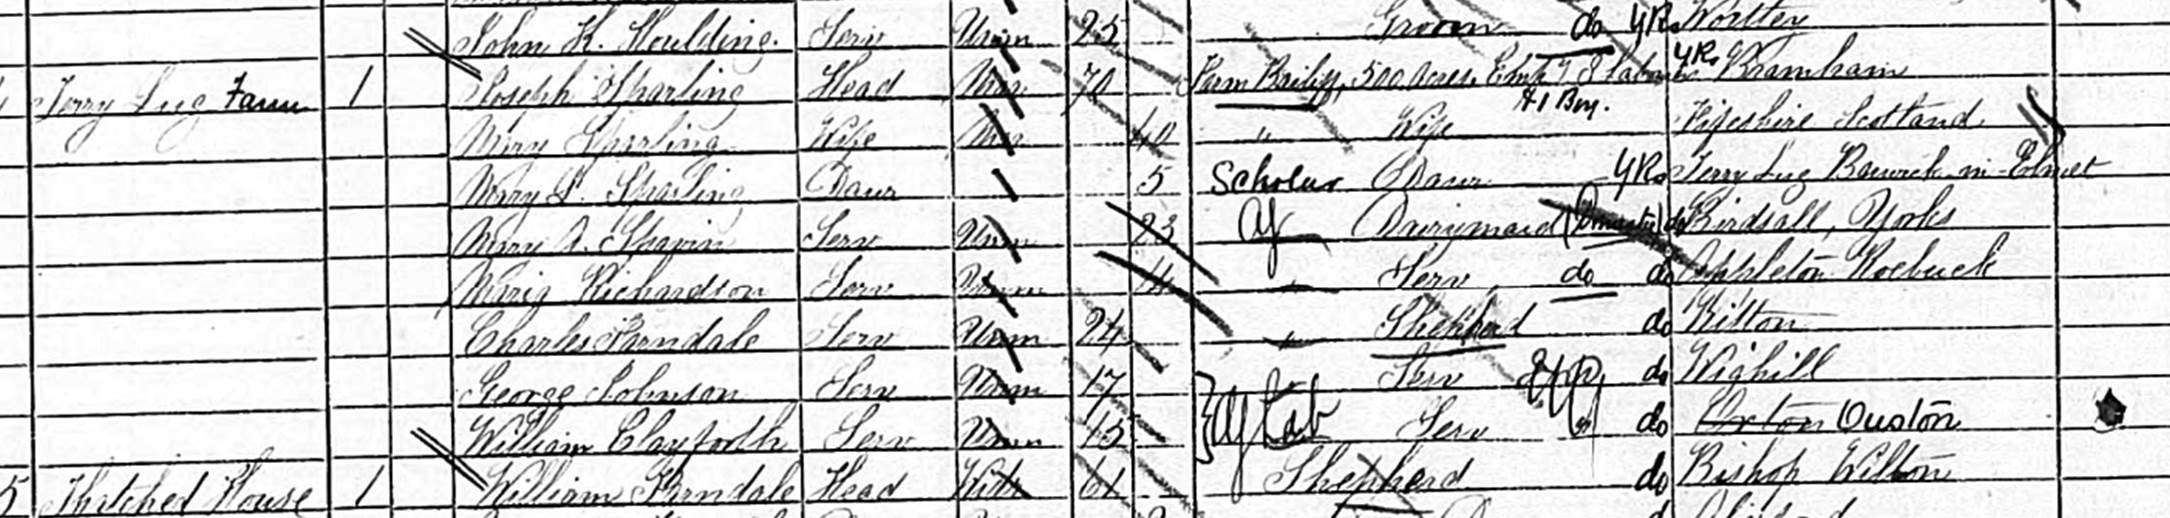 John K. Houlding. Serv Unm 25 Groom do YR Wortley
Terry Lug Farm 1 Joseph Sparling Head Mar 70 Farm Bailiff, 500 acres, Emp 7 Labrs & 1 Boy. YR Bramham
Mary Sparling Wife Mar 40 " Wife Fifeshire Scotland
Mary L. Sparling Daur 5 Scholar Daur YR Terry Lug Barwick-in-Elmet
Mary A. Spavin Serv Unm 23 Dairymaid (Domestic) do Birdsall, Yorks
Maria Richardson Serv Unm Serv do do Appleton Roebuck
Charles Farndale Serv Unm 24 Shepherd do Kilton
George Johnson Serv Unm 17 Serv do Wighill
William Clayforth Serv Unm 15 Ag Lab Serv do Ouston
5 Thatched House 1 William Farndale Head Widr 61 Shepherd do Bishop Wilton